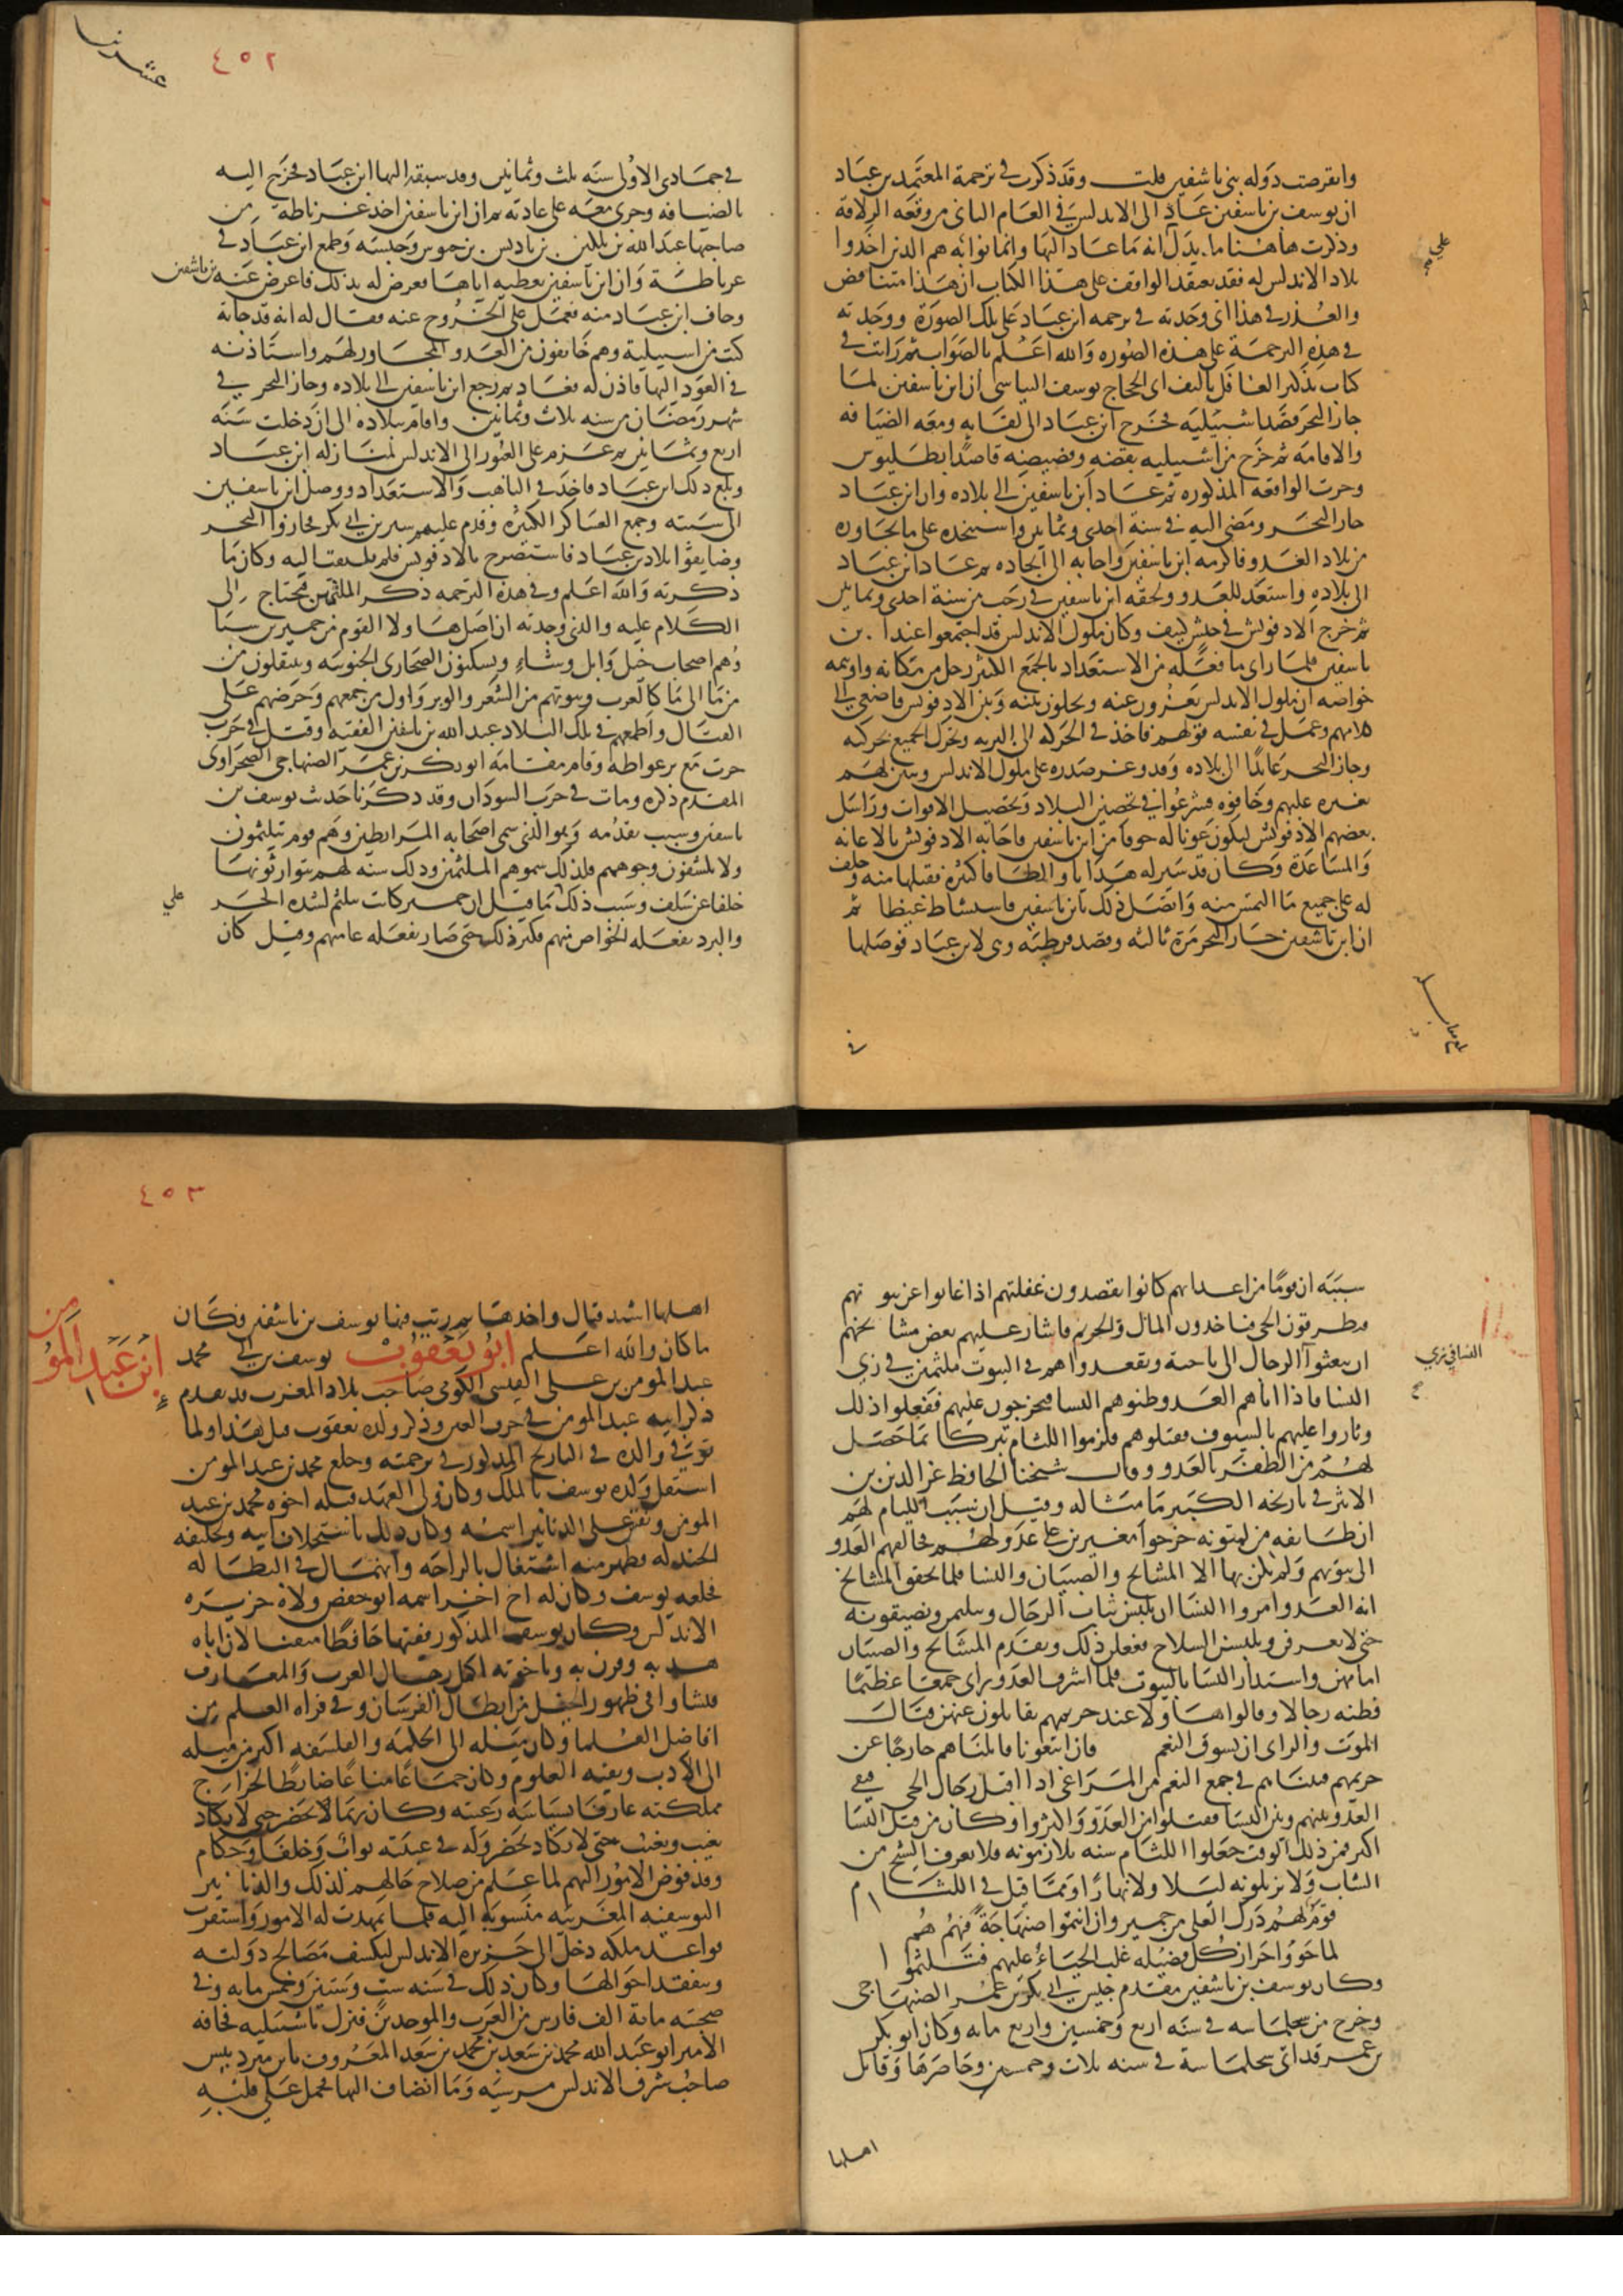 وانقرضت دولة بني تاشفين قلت وقد ذكرت في ترجمة المعتمد بن عباد
ان يوسف بن تاشفين عاد الى الاندلس في العام الثاني من وقعة الزلاقة
وذكرت هاهنا ما يدل انه ما عاد اليها وانما نوابه هم الذين اخذوا
بلاد الاندلس له فقد يعتقد الواقف على هذا الكتاب ان هذا متناقض
والعذر في هذا اني وجدته في ترجمة ابن عباد على تلك الصورة ووجدته
في هذه الترجمة على هذه الصورة والله اعلم بالصواب ثم رايت في
كتاب تذكير الغافل تاليف ابي الحجاج يوسف البياسي ان ابن تاشفين لما
جاز البحر قصد اشبيلية فخرج ابن عباد الى لقايه ومعه الضيافه
والاقامة ثم خرج من اشبيلية بقضه وقضيضه قاصدا بطليوس
وجرت الواقعه المذكورة ثم عاد ابن تاشفين الى بلاده وان ابن عباد
جاز البحر ومضى اليه في سنة احدى وثمانين واستنجده على ما يجاوره
من بلاد العدو فاكرمه ابن تاشفين واجابه الى انجاده ثم عاد ابن عباد
الى بلاده واستعد للعدو ولحقه ابن تاشفين في رجب من سنة احدى وثمانين
ثم خرج الادفونش في جيش كثيف وكان ملوك الاندلس قد اجتمعوا عند ابن
تاشفين فلما راى ما فعله من الاستعداد بالجمع الكثير رحل من مكانه واوهمه
خواصه ان ملوك الاندلس يفرون عنه ويخلون بينه وبين الادفونش فاصغى الى
كلامهم وعمل في نفسه قولهم فاخذ في الحركة الى البرية وتحرك الجميع بحركته
وجاز البحر عايدا الى بلاده وقد وغر صدره على ملوك الاندلس وتبين لهم
تغيره عليهم وخافوه فشرعوا في تحصين البلاد وتحصيل الاقوات وراسل
بعضهم الادفونش ليكون عونا له خوفا من ابن تاشفين فاجابه الادفونش بالاعانة
والمساعدة وكان قد سير له هدايا والطافا كثيرة فقبلها منه وحلف
له على جميع ما التمس منه واتصل ذلك بابن تاشفين فاستشاط غيظا ثم
ان ابن تاشفين جاز البحر مرة ثالثة وقصد قرطبة وهي لابن عباد فوصلها
في
٤٥٢
في جمادى الاولى سنة ثلث وثمانين وقد سبقه اليها ابن عباد فخرج اليه
بالضيافه وجرى معه على عادته ثم ان ابن تاشفين اخذ غرناطة من
صاحبها عبد الله بن بلكين بن باديس بن حبوس وحبسه وطمع ابن عباد في
غرناطة وان ابن تاشفين يعطيه اياها فعرض له بذلك فاعرض عنه بن تاشفين
وخاف ابن عباد منه فعمل على الخروج عنه فقال له انه قد جاته
كتب من اشبيلية وهم خايفون من العدو المجاور لهم واستاذنه
في العود اليها فاذن له فعاد ثم رجع ابن تاشفين الى بلاده وجاز البحر في
شهر رمضان من سنه ثلاث وثمانين واقام ببلاده الى ان دخلت سنة
اربع وثمانين ثم عزم على العبور الى الاندلس لمنازلة ابن عباد
وبلغ ذلك ابن عباد فاخذ في التاهب والاستعداد ووصل ابن تاشفين
الى سبته وجمع العساكر الكثيرة وقدم عليهم سير بن ابي بكر فجازوا البحر
وضايقوا بلاد بن عباد فاستصرخ بالادفونس فلم يلتفت اليه وكان ما
ذكرته والله اعلم وفي هذه الترجمه ذكر الملثمين فنحتاج الى
الكلام عليه والذي وجدته ان اصل هاولا القوم من حمير بن سبا
وهم اصحاب خيل وابل وشاء ويسكنون الصحارى الجنوبيه وينتقلون من
من ما الى ما كالعرب وبيوتهم من الشعر والوبر واول من جمعهم وحرضهم على
القتال واطمعهم في تلك البلاد عبد الله بن ياسين الفقيه وقتل في حرب
جرت مع برغواطة وقام مقامه ابو بكر بن عمر الصنهاجي الصحراوي
المقدم ذكره ومات في حرب السودان وقد ذكرنا حديث يوسف بن
تاشفين وسبب تقدمه وهو الذي سمى اصحابه المرابطين وهم قوم يتلثمون
ولا يكشفون وجوههم فلذلك سموهم الملثمين وذلك سنة لهم يتوارثونها
خلفا عن سلف وسبب ذلك فيما قيل ان حمير كانت تتلثم لشدة الحر
والبرد يفعله الخواص منهم فكثر ذلك حتى صار يفعله عامتهم وقيل كان
سببه ان قوما من اعدايهم كانوا يقصدون غفلتهم اذا غابوا عن بيوتهم
فيطرقون الحي فياخذون المال والحريم فاشار عليهم بعض مشايخهم
ان يبعثوا الرجال الى ناحية ويقعدوا هم في البيوت ملثمين في زي
النسا فاذا اتاهم العدو وظنوهم النسا فيخرجون عليهم ففعلوا ذلك
وثاروا عليهم بالسيوف فقتلوهم فلزموا اللثام تبركا بما حصل
لهم من الظفر بالعدو وقال شيخنا الحافظ عز الدين بن
الاثير في تاريخه الكبير ما مثاله وقيل ان سبب اللثام لهم
ان طايفه من لمتونه خرجوا مغيرين على عدو لهم فخالفهم العدو
الى بيوتهم ولم يكن بها الا المشايخ والصبيان والنسا فلما تحقق المشايخ
انه العدو امروا النسا ان يلبسن ثياب الرجال ويتلثمن ويضيقونه
حتى لا يعرفن ويلبسن السلاح ففعلن ذلك وتقدم المشايخ والصبيان
امامهن واستدار النسا بالبيوت فلما اشرف العدو راى جمعا عظيما
فظنه رجالا وقالوا هاولا عند حريمهم يقاتلون عنهن قتال
الموت والراى ان نسوق النعم فان اتبعونا قاتلناهم خارجا عن
حريمهم فبيناهم في جمع النعم من المراعي اذا اقبل رجال الحي فبقي
العدو بينهم وبين النسا فقتلوا من العدو واكثروا وكان من قتل النسا
اكثر فمن ذلك الوقت جعلوا اللثام سنه يلازمونه فلا يعرف الشيخ من
الشاب ولا يزيلونه ليلا ولا نهارا ومما قيل في اللثام
قوم لهم درك العلى من حمير وان انتموا صنهاجة فهم هم
لما حووا احراز كل فضيله غلب الحياء عليهم فتلثموا
وكان يوسف بن تاشفين مقدم جيش ابي بكر بن عمر الصنهاجي
وخرج من سجلماسه في سنه اربع وخمسين واربع مايه وكان ابو بكر
بن عمر قد اتى سجلماسة في سنه ثلاث وخمسين وحاصرها وقاتل
اهلها
٤٥٣
اهلها اشد قتال واخذها ثم رتب فيها يوسف بن تاشفين فكان
ما كان والله اعلم ابو يعقوب يوسف بن ابي محمد
عبد المومن بن علي القيسي الكومي صاحب بلاد المغرب قد تقدم
ذكر ابيه عبد المومن في حرف العين وذكر ولده يعقوب قبل هذا ولما
توفي والده في التاريخ المذكور في ترجمته وخلع محمد بن عبد المومن
استقل ولده يوسف بالملك وكان ولي العهد قبله اخوه محمد بن عبد
المومن ونقش على الدنانير اسمه وكان ذلك باستخلاف ابيه وتحليفه
الجند له فظهر منه اشتغال بالراحة وانهماك في البطالة
فخلعه يوسف وكان له اخ اخر اسمه ابو حفص ولاه جزيره
الاندلس وكان يوسف المذكور فقيها حافظا متقنا لان اباه
هذبه وقرن به وباخوته اكمل رجال الحرب والمعارف
فنشاوا في ظهور الخيل بين ابطال الفرسان وفي قراة العلم بين
افاضل العلما وكان ميله الى الحكمة والفلسفه اكثر من ميله
الى الادب وبقية العلوم وكان جماعا مناعا ضابطا لخراج
مملكته عارفا بسياسة رعيته وكان ربما يحضر حتى لا يكاد
يغيب ويغيب حتى لا يكاد يحضر وله في غيبته نواب وخلفا وحكام
وقد فوض الامور اليهم لما علم من صلاح حالهم لذلك والدنانير
اليوسفيه المغربيه منسوبه اليه فلما تمهدت له الامور واستقرت
قواعد ملكه دخل الى جزيرة الاندلس ليكشف مصالح دولته
ويتفقد احوالها وكان ذلك في سنه ست وستين وخمس مايه وفي
صحبته ماية الف فارس من العرب والموحدين فنزل باشبيليه فخافه
الامير ابو عبد الله محمد بن سعد بن محمد بن سعد المعروف بابن مردنيش
صاحب شرق الاندلس مرسيه وما انضاف اليها فحمل على قلبه